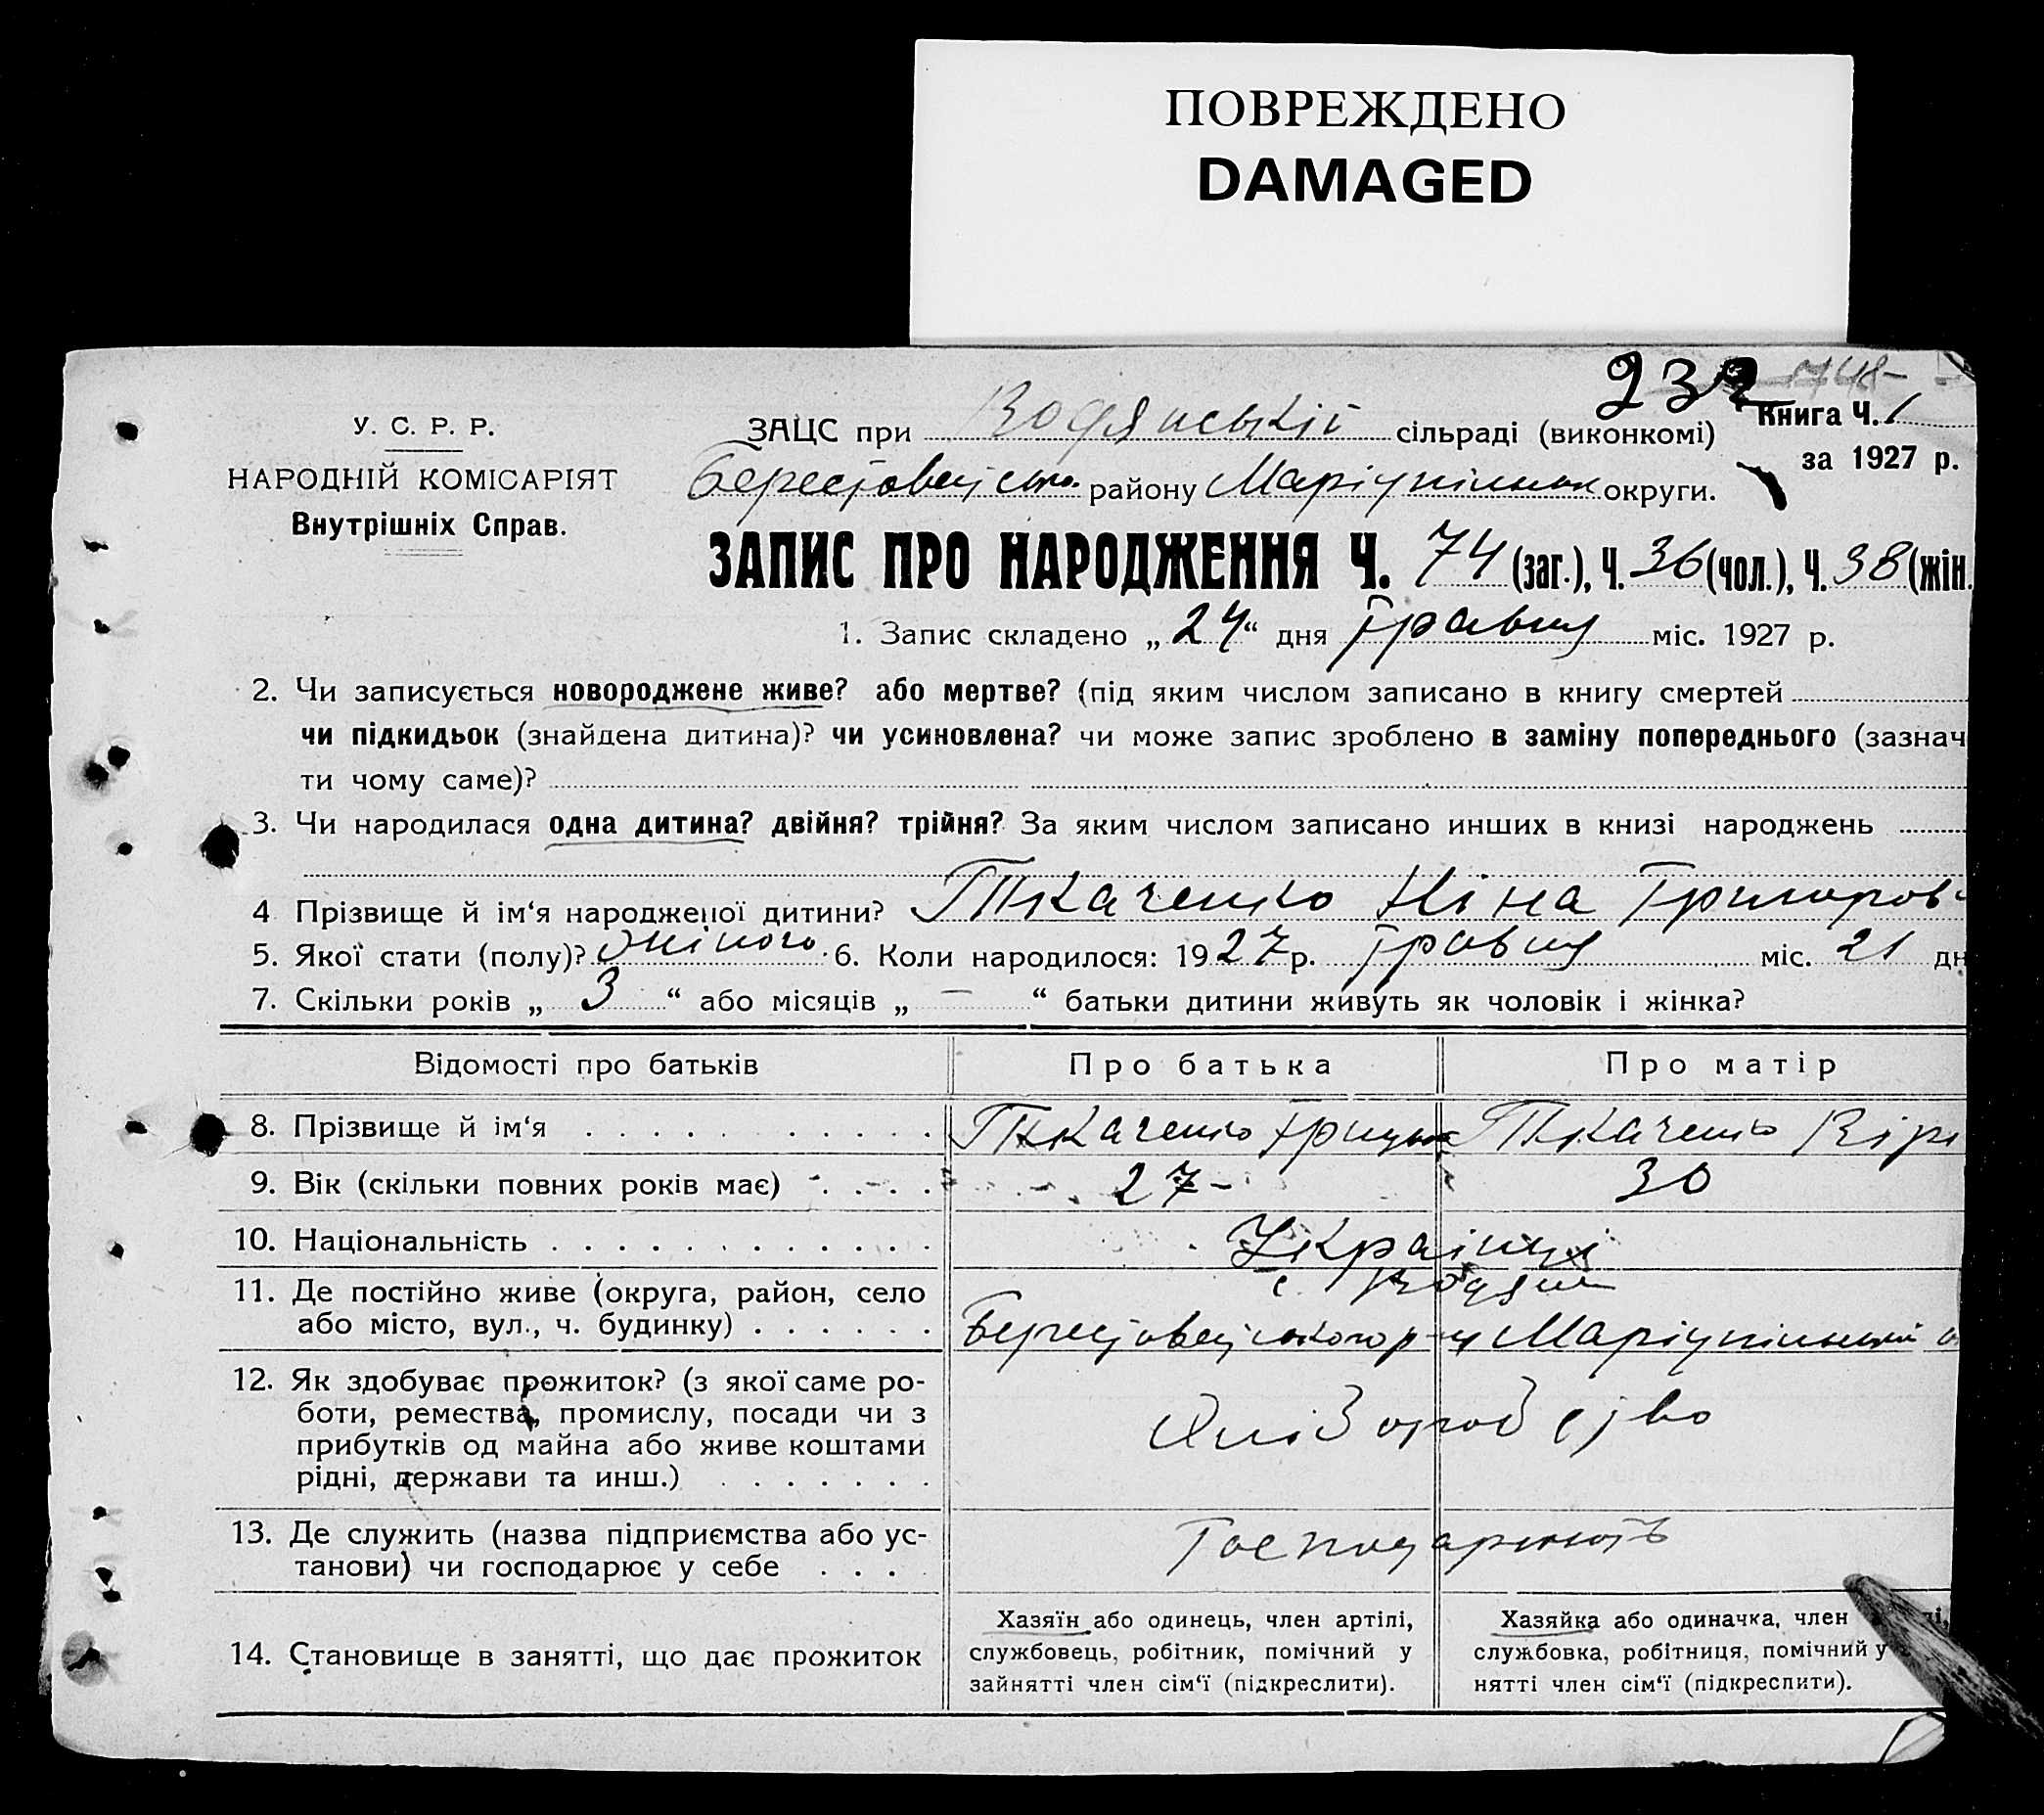 ПОВРЕЖДЕНО
DAMAGED
232 748-
У. С. Р. Р.
НАРОДНІЙ КОМІСАРІЯТ
Внутрішніх Справ.
ЗАЦС при Водянській сільраді (виконкомі) Книга Ч. 1
за 1927 р.
Берестовецько. району Маріупільськ округи.
ЗАПИС ПРО НАРОДЖЕННЯ Ч. 74 (заг.), Ч. 36 (чол.), Ч. 38 (жін.
1. Запис складено „ 24 “ дня травня міс. 1927 р.
2. Чи записується новороджене живе? або мертве? (під яким числом записано в книгу смертей
чи підкидьок (знайдена дитина)? чи усиновлена? чи може запис зроблено в заміну попереднього (зазнач
ти чому саме)?
3. Чи народилася одна дитина? двійня? трійня? За яким числом записано инших в книзі народжень
4 Прізвище й ім‘я народженої дитини? Ткаченко Ніна Григоров
5. Якої стати (полу)? жіного 6. Коли народилося: 1927 р. травня міс. 21 дн
7. Скільки років „ 3 “ або місяців „ — “ батьки дитини живуть як чоловік і жінка?
Відомості про батьків Про батька Про матір
8. Прізвище й ім‘я Ткаченко Грицько Ткаченко Віри
9. Вік (скільки повних років має) 27- 30
10. Національність Українці
11. Де постійно живе (округа, район, село с. Водяне
або місто, вул., ч. будинку) Берестовецького р-у Маріупільської о
12. Як здобуває прожиток? (з якої саме ро-
боти, ремества, промислу, посади чи з
прибутків од майна або живе коштами
рідні, держави та инш.)
13. Де служить (назва підприємства або ус- Господарюють
танови) чи господарює у себе
14. Становище в занятті, що дає прожиток
Хазяїн або одинець, член артілі,
службовець, робітник, помічний у
зайнятті член сім‘ї (підкреслити).
Хазяйка або одиначка, член
службовка, робітниця, помічний у
нятті член сім‘ї (підкреслити).